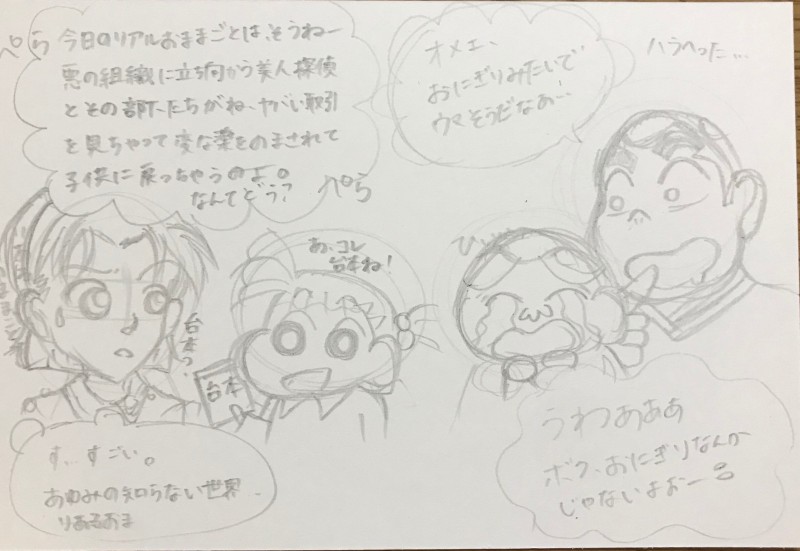 ぺら
今日のリアルおままごとは、そうねー
悪の組織に立ち向かう美人探偵
とその部下たちがね、ヤバい取引
を見ちゃって変な薬をのまされて
子供に戻っちゃうのよ。
なんてどう?
ぺら
オメエ、
おにぎりみたいで
ウマそうだなあ…
ハラへった…
あ、コレ
台本ね!
台本っ
台本
す…すごい。
あゆみの知らない世界
りあるおま
うわあああ
ボク、おにぎりなんか
じゃないよおー